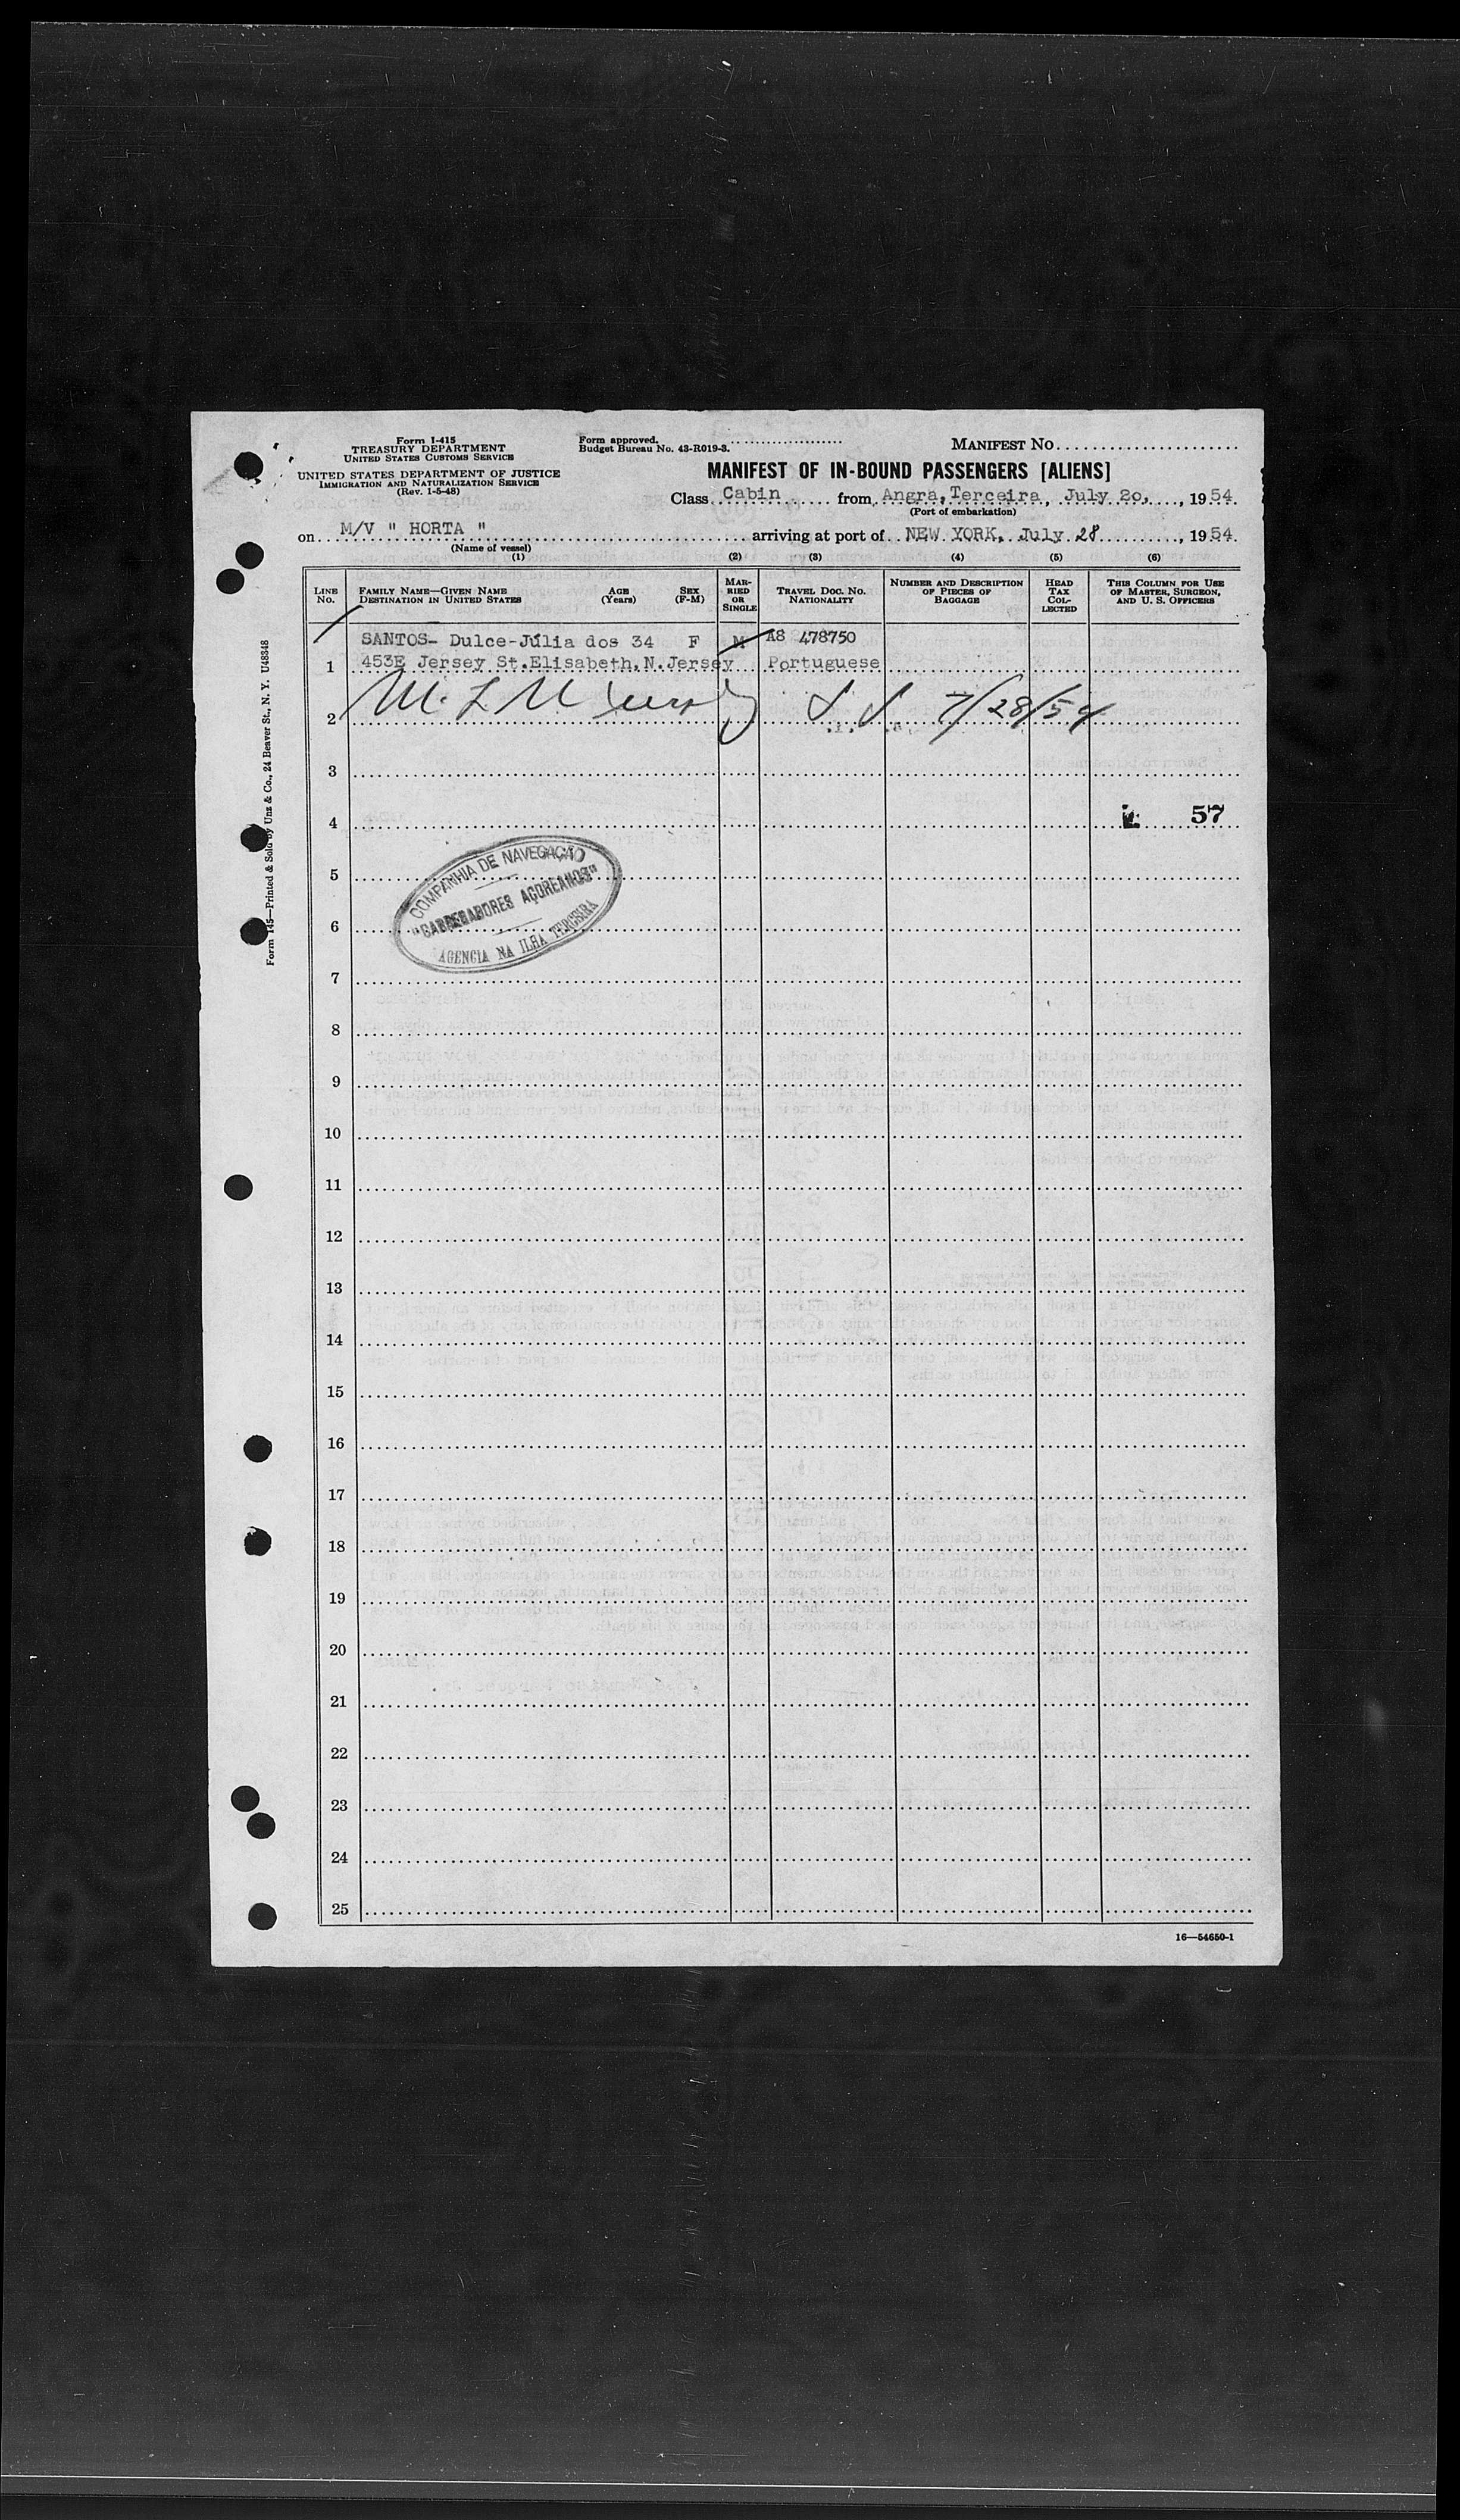 Form I-415
TREASURY DEPARTMENT
UNITED STATES CUSTOMS SERVICE
UNITED STATES DEPARTMENT OF JUSTICE
IMMIGRATION AND NATURALIZATION SERVICE
(Rev. 1-5-48)
Form approved.
Budget Bureau No. 43-R019-3.
MANIFEST NO.
MANIFEST OF IN-BOUND PASSENGERS [ALIENS]
Class Cabin from Angra, Terceira, July 20, , 1954.
(Port of embarkation)
on M/V " HORTA " arriving at port of NEW YORK, July 28 , 1954.
(Name of vessel)
(1) (2) (3) (4) (5) (6)
LINE NO.
FAMILY NAME—GIVEN NAME DESTINATION IN UNITED STATES
AGE (Years)
SEX (F-M)
MARRIED OR SINGLE
TRAVEL DOC. NO. NATIONALITY
NUMBER AND DESCRIPTION OF PIECES OF BAGGAGE
HEAD TAX COLLECTED
THIS COLUMN FOR USE OF MASTER, SURGEON, AND U. S. OFFICERS
SANTOS- Dulce-Júlia dos 34 F M A8 478750
1 453E Jersey St.Elisabeth,N.Jersey Portuguese
2 7/28/54
3
4 57
COMPANHIA DE NAVEGAÇÃO
"CARREGADORES AÇOREANOS"
AGENCIA NA ILHA TERCEIRA
5
6
7
8
9
10
11
12
13
14
15
16
17
18
19
20
21
22
23
24
25
16—54650-1
Form 145—Printed & Sold by Unz & Co., 24 Beaver St., N. Y. U48348